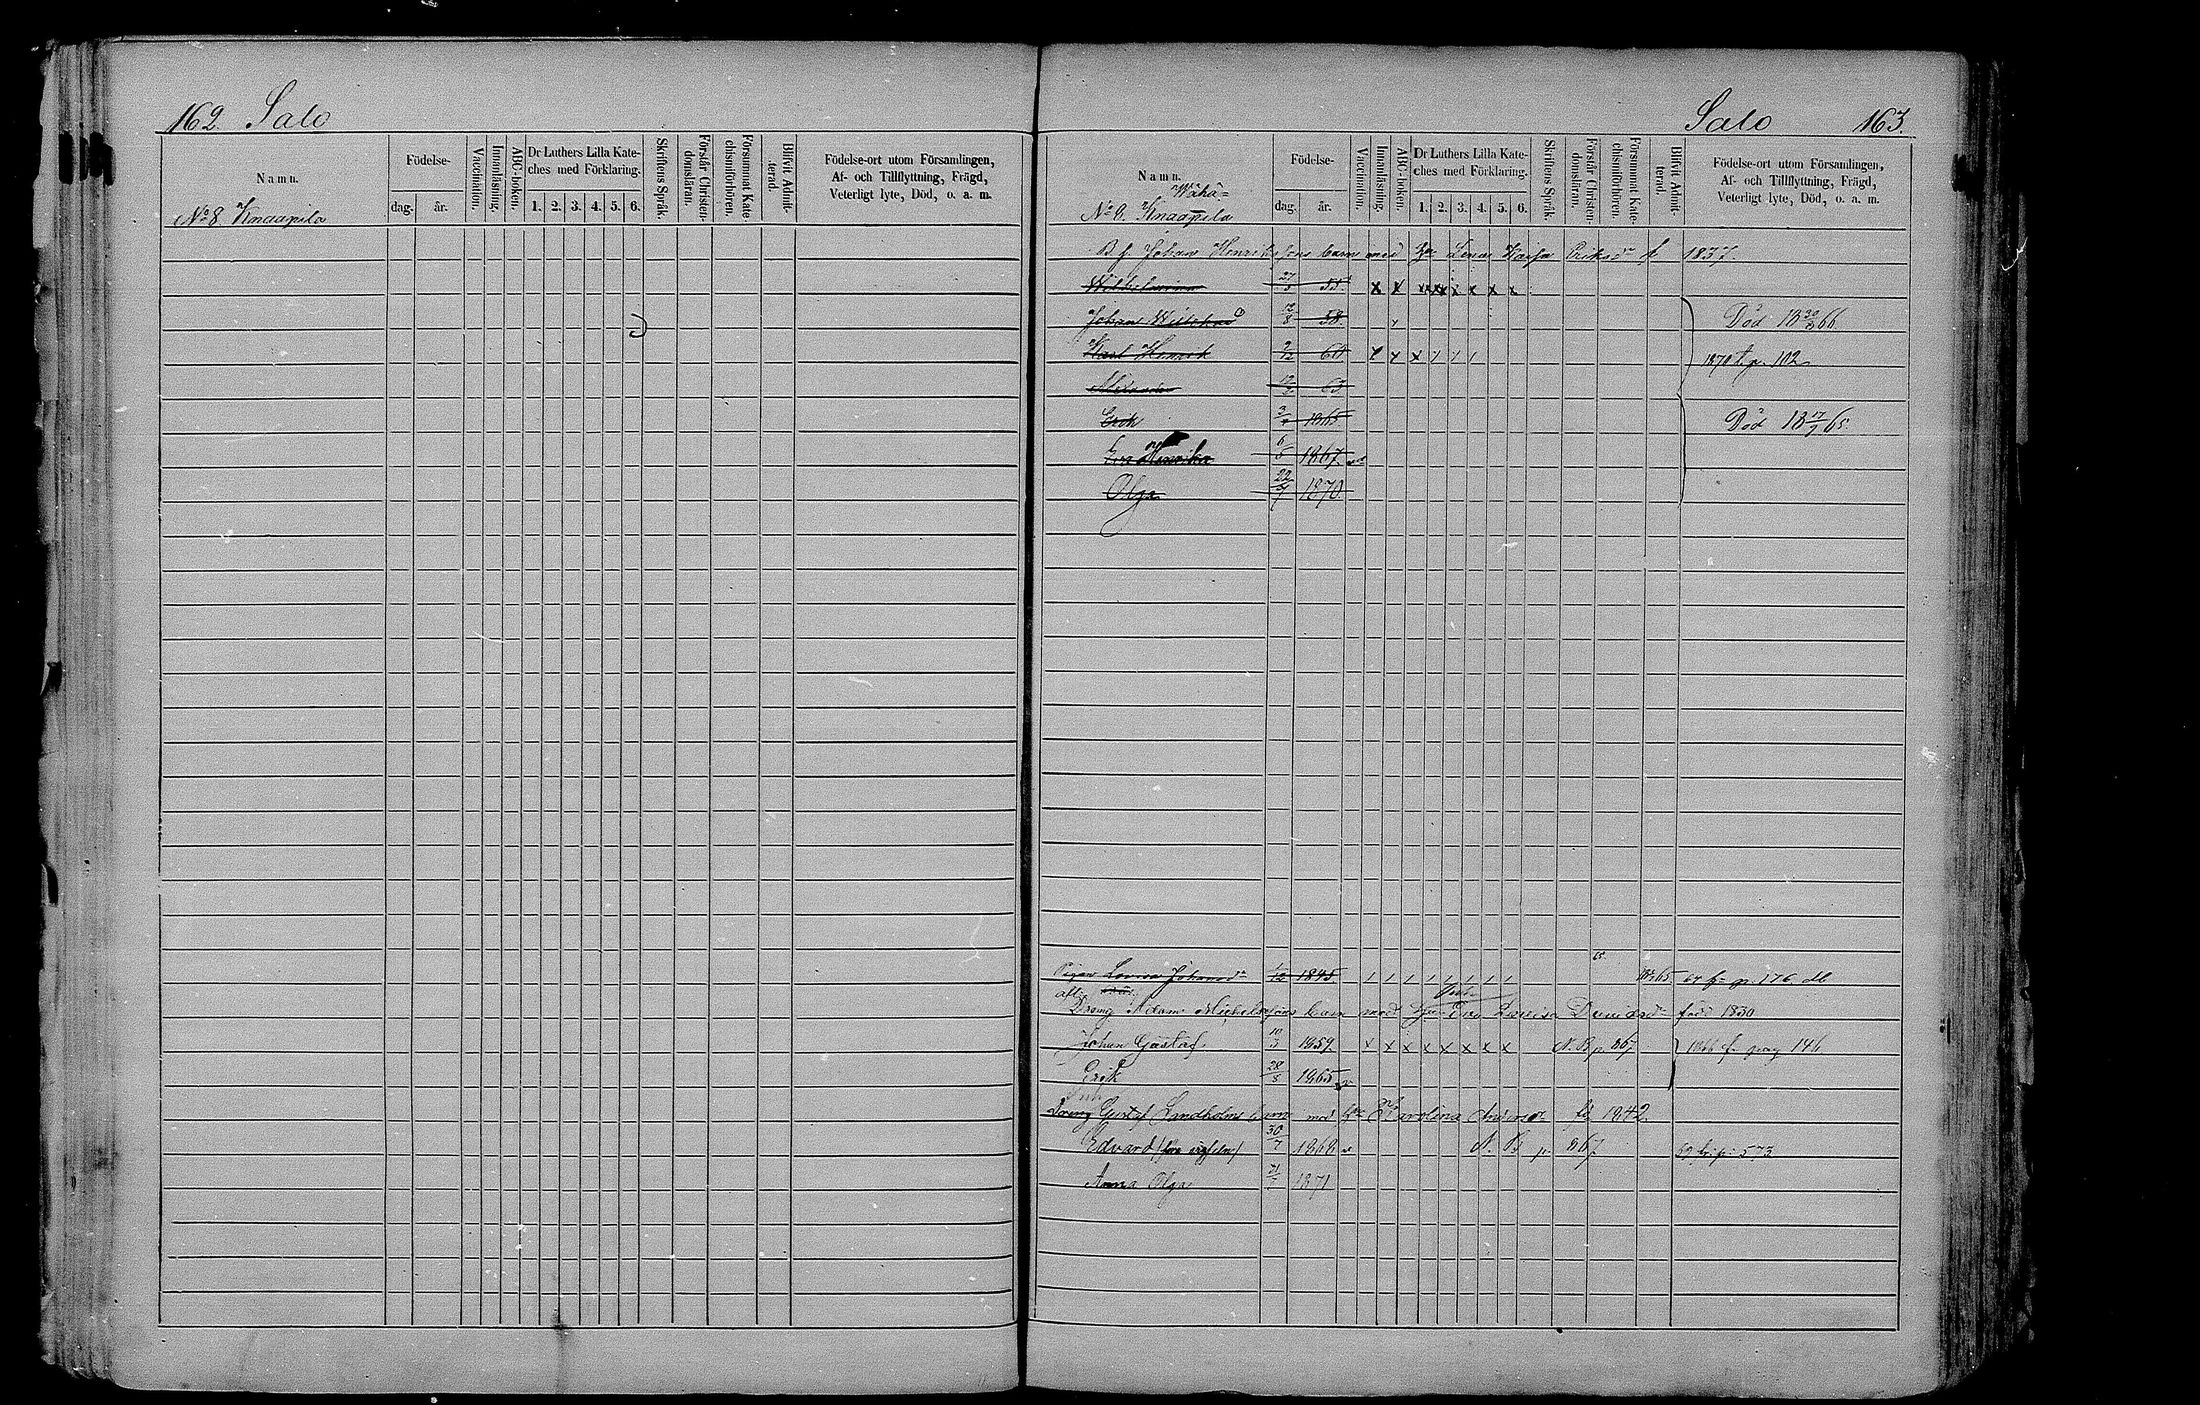 162. Salo
Namn.
Födelse-
dag. år.
Vaccination.
Innanläsning.
ABC-boken.
Dr Luthers Lilla Kate-
ches med Förklaring.
1. 2. 3. 4. 5. 6.
Skriftens Språk.
Förstår Christen-
domsläran.
Försummat Kate-
chismiförhören.
Blifvit Admit-
terad.
Födelse-ort utom Församlingen,
Af- och Tillflyttning, Frägd,
Veterligt lyte, Död, o. a. m.
No 8 Knaapila
Salo 163.
Namn.
Födelse-
dag. år.
Vaccination.
Innanläsning.
ABC-boken.
Dr Luthers Lilla Kate-
ches med Förklaring.
1. 2. 3. 4. 5. 6.
Skriftens Språk.
Förstår Christen-
domsläran.
Försummat Kate-
chismiförhören.
Blifvit Admit-
terad.
Födelse-ort utom Församlingen,
Af- och Tillflyttning, Frägd,
Veterligt lyte, Död, o. a. m.
Wähä-
No 9. Knaapila
Johan Henrikssons barn med Lena Kajsa Eriksdr f 1837.
Wilhelmina 27/3 55. x x x x x x x x
Johan Wilhelm 12/8 58. Död 18 66
Karl Henrik 9/12 60 x x x / / / 1870 t. p. 102
Alexander 63
Erik 1865 Död 18 17/7 65
Eva Henrika 6/5 1867
Olga 22/7 1870
Pigan Lovisa Johansdr 1/12 1845 / / / / / / / / 65 67 p. 176
Dräng Adam Michelssons barn med Eva Lovisa Davidsdr född 1830
Johan Gustaf 10/3 1859 x x x x x x x x N. B. p. 267 1866 fr. pag 146
Erik 28/8 1865
Dräng Gustaf Lindholms barn med Karolina Andersdr fö 1842
Edvard 30/7 1868 N. B p. 267. 69 fr. p. 573
Anna Olga 1871